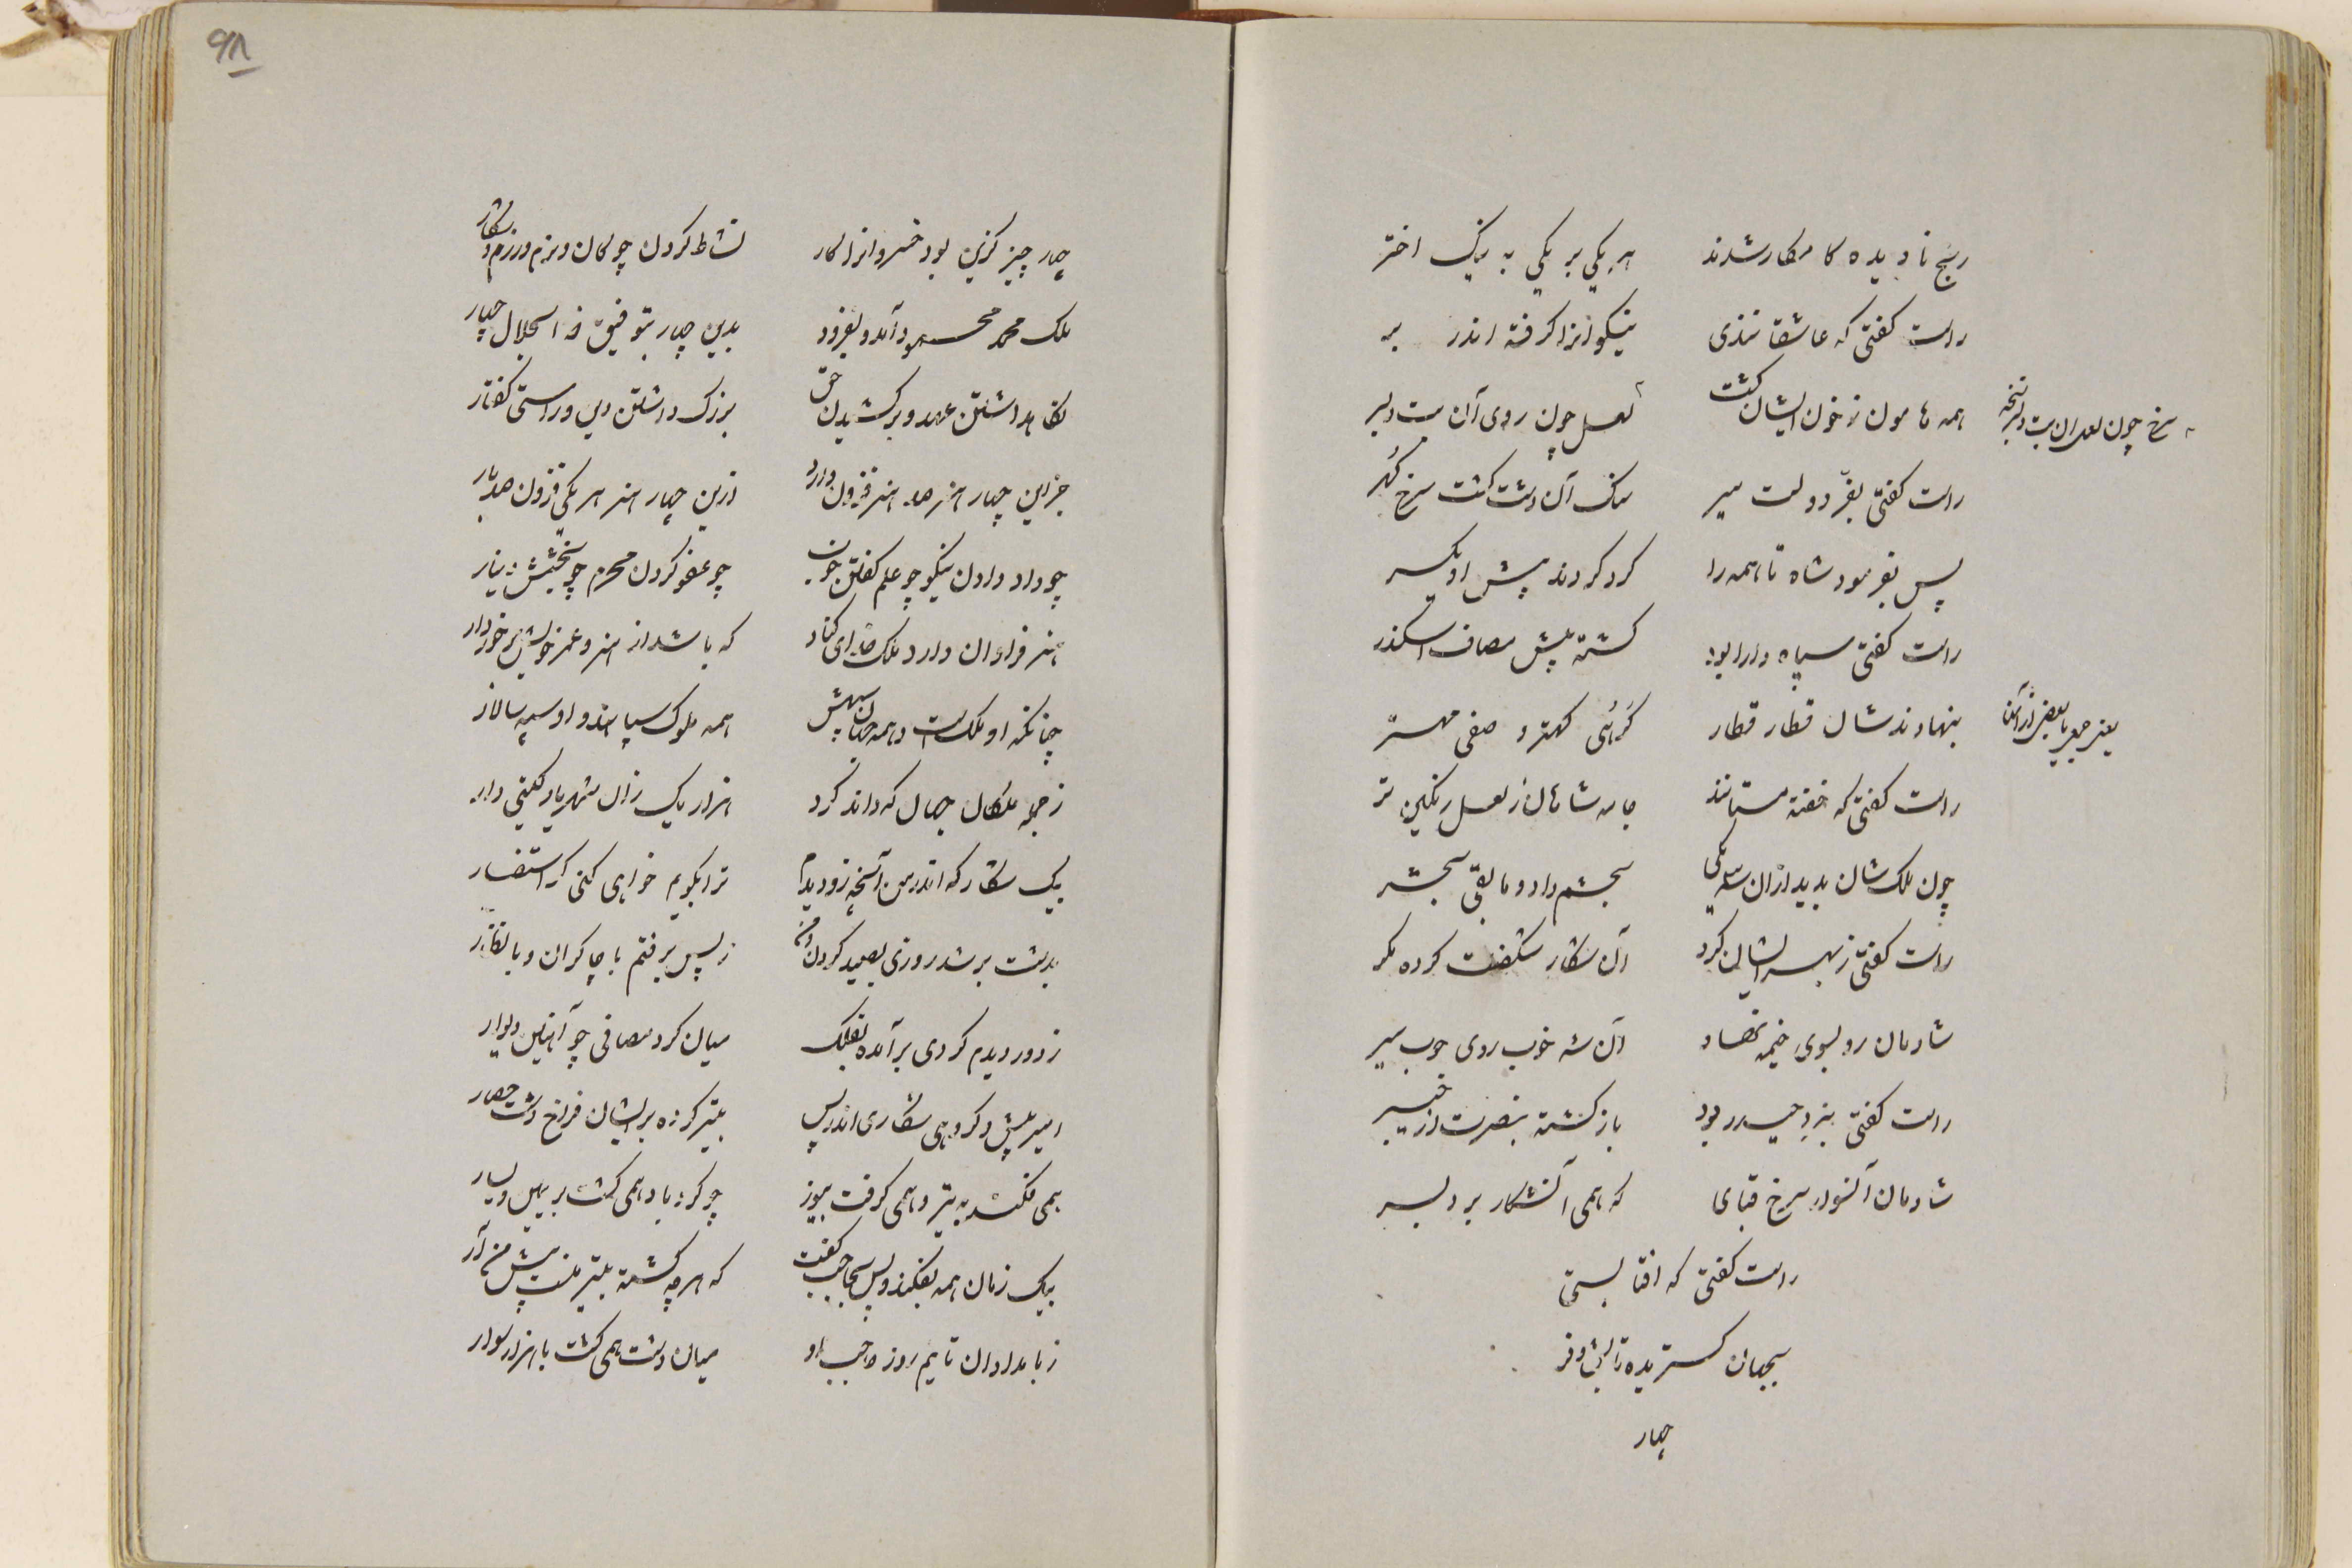 رنج نادیده کامکار شدند هر یکی بر یکی به نیک اختر
راست کفتی که عاشقانندی نیکوانرا کرفته اندر بر
همه هامون ز خون ایشان کشت لعل چون روی آن بت دلبر
سرخ چون لعل ان بت دلبر نسخه
راست کفتی بفرّ دولت میر سنک آن دشت کشت سرخ کهر
پس بفرمود شاه تا همه را کرد کردند پیش او یکسر
راست کفتی سپاه دارا بود کشته پیش مصاف اسکندر
بنهادندشان قطار قطار کرهٔی کهتر و صفی مهتر
یعنی جمعی یا بعضی از آن
راست کفتی که خفته مستانند جامه شاهان ز لعل رنکین تر
چون ملک شان بدید ازان سه یکی بحشم داد و مابقی بحشر
راست کفتی ز بهر ایشان کرد آن شکار شکفت کرده مکر
شادمان رو بسوی خیمه نهاد آن شه خوب روی خوب سیر
راست کفتی نبرد حیدر بود باز کشته بنصرت از خیبر
شادمان آنسوار سرخ قبای که همی آنشکار برد بسر
راست کفتی که افتابستی
بجهان کستریده تابش و فر
چهار
۹۸
چهار چیز کزین بود خسروانرا کار نشاط کردن چوکان و بزم و رزم و شکار
ملک محمد محمود آمد و بفزود بدین چهار بتوفیق ذو الجلال چهار
نکاهداشتن عهد و برکشیدن حق بزرک داشتن دین و راستی کفتار
جز این چهار هنر صد هنر فزون دارد ازین چهار هنر هر یکی فزون صدبار
چو داد دادن نیکو چو علم کفتن خوب چو عفو کردن مجرم چو بخشش دینار
هنر فراوان دارد ملک خدای کناد که باشد از هنر و عمر خویش برخوردار
چنانکه او ملکست و همه جهان سپهش همه ملوک سپاهند و او سپه سالار
ز جمله ملکان جهان که داند کرد هزار یک زان شهریار کیتی دار
یک شکار که اندر من آنچه زو دیدم ترا بکویم خواهی کنی کر استفسار
بدشت بر شد روزی بصید کردن و من ز پس برفتم با چاکران و با نظار
ز دور دیدم کردی برآمده بفلک میان کرد مصافی چو آهنین دیوار
امیر پیش و کروهی شکاری اندر پس بتیر کرده بر ایشان فراخ دشت حصار
همی فکند به تیر و همی کرفت بیوز چو کرد باد همی کشت بر یمین و یسار
بیک زمان همه بفکند و پس بحاجب کفت که هر چه کشته بتیر منست پیش من آر
ز بامدادان تا نیم روز حاجب او میان دشت همی کشت با هزار سوار